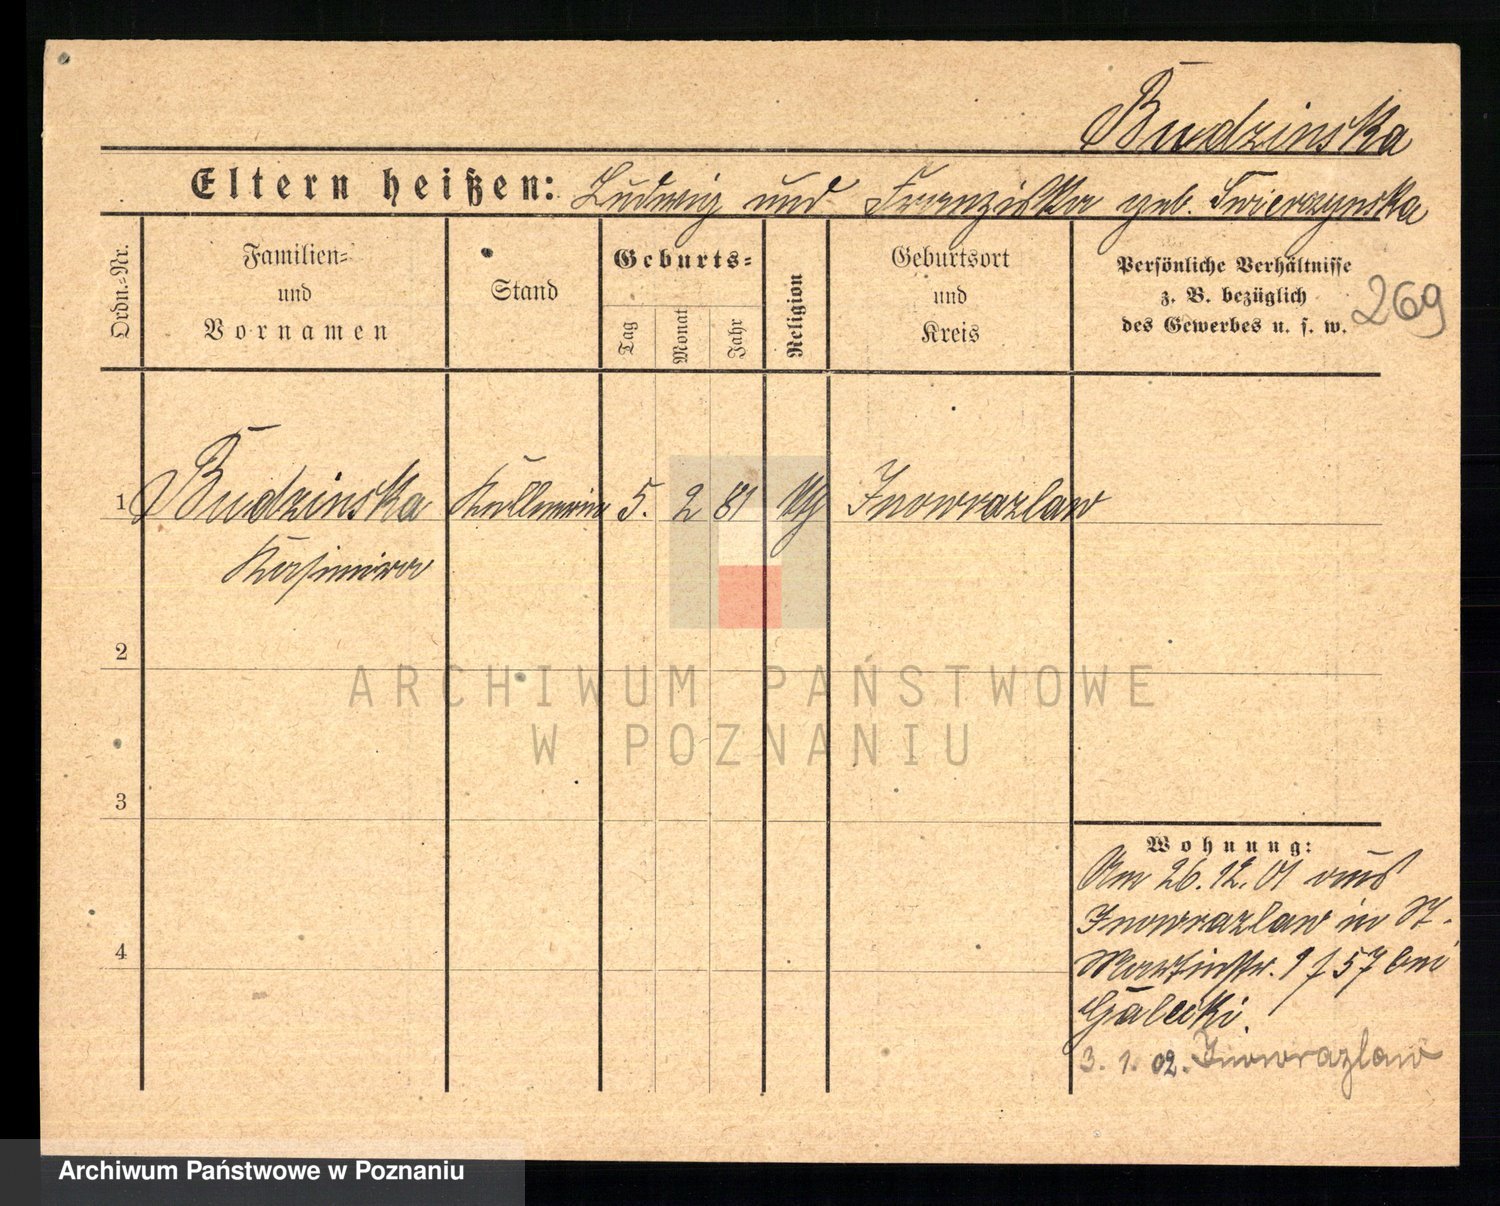 Budzinska
Eltern heißen: Ludwig und Franziska geb. Twierzynska
Ordn.-Nr.
Familien-
und
Vornamen
Stand
Geburts-
Tag
Monat
Jahr
Religion
Geburtsort
und
Kreis
Persönliche Verhältnisse
z. B. bezüglich
des Gewerbes u. s. w.
269
1 Budzinska Kellnerin 5. 2 81 Inowrazlaw
Kasimira
2
3
4
Wohnung:
Am 26.12.01 aus
Inowrazlaw in St.
Martinstr. 57 bei
Galecki.
3. 1. 02. Inowrazlaw
ARCHIWUM PAŃSTWOWE
W POZNANIU
Archiwum Państwowe w Poznaniu